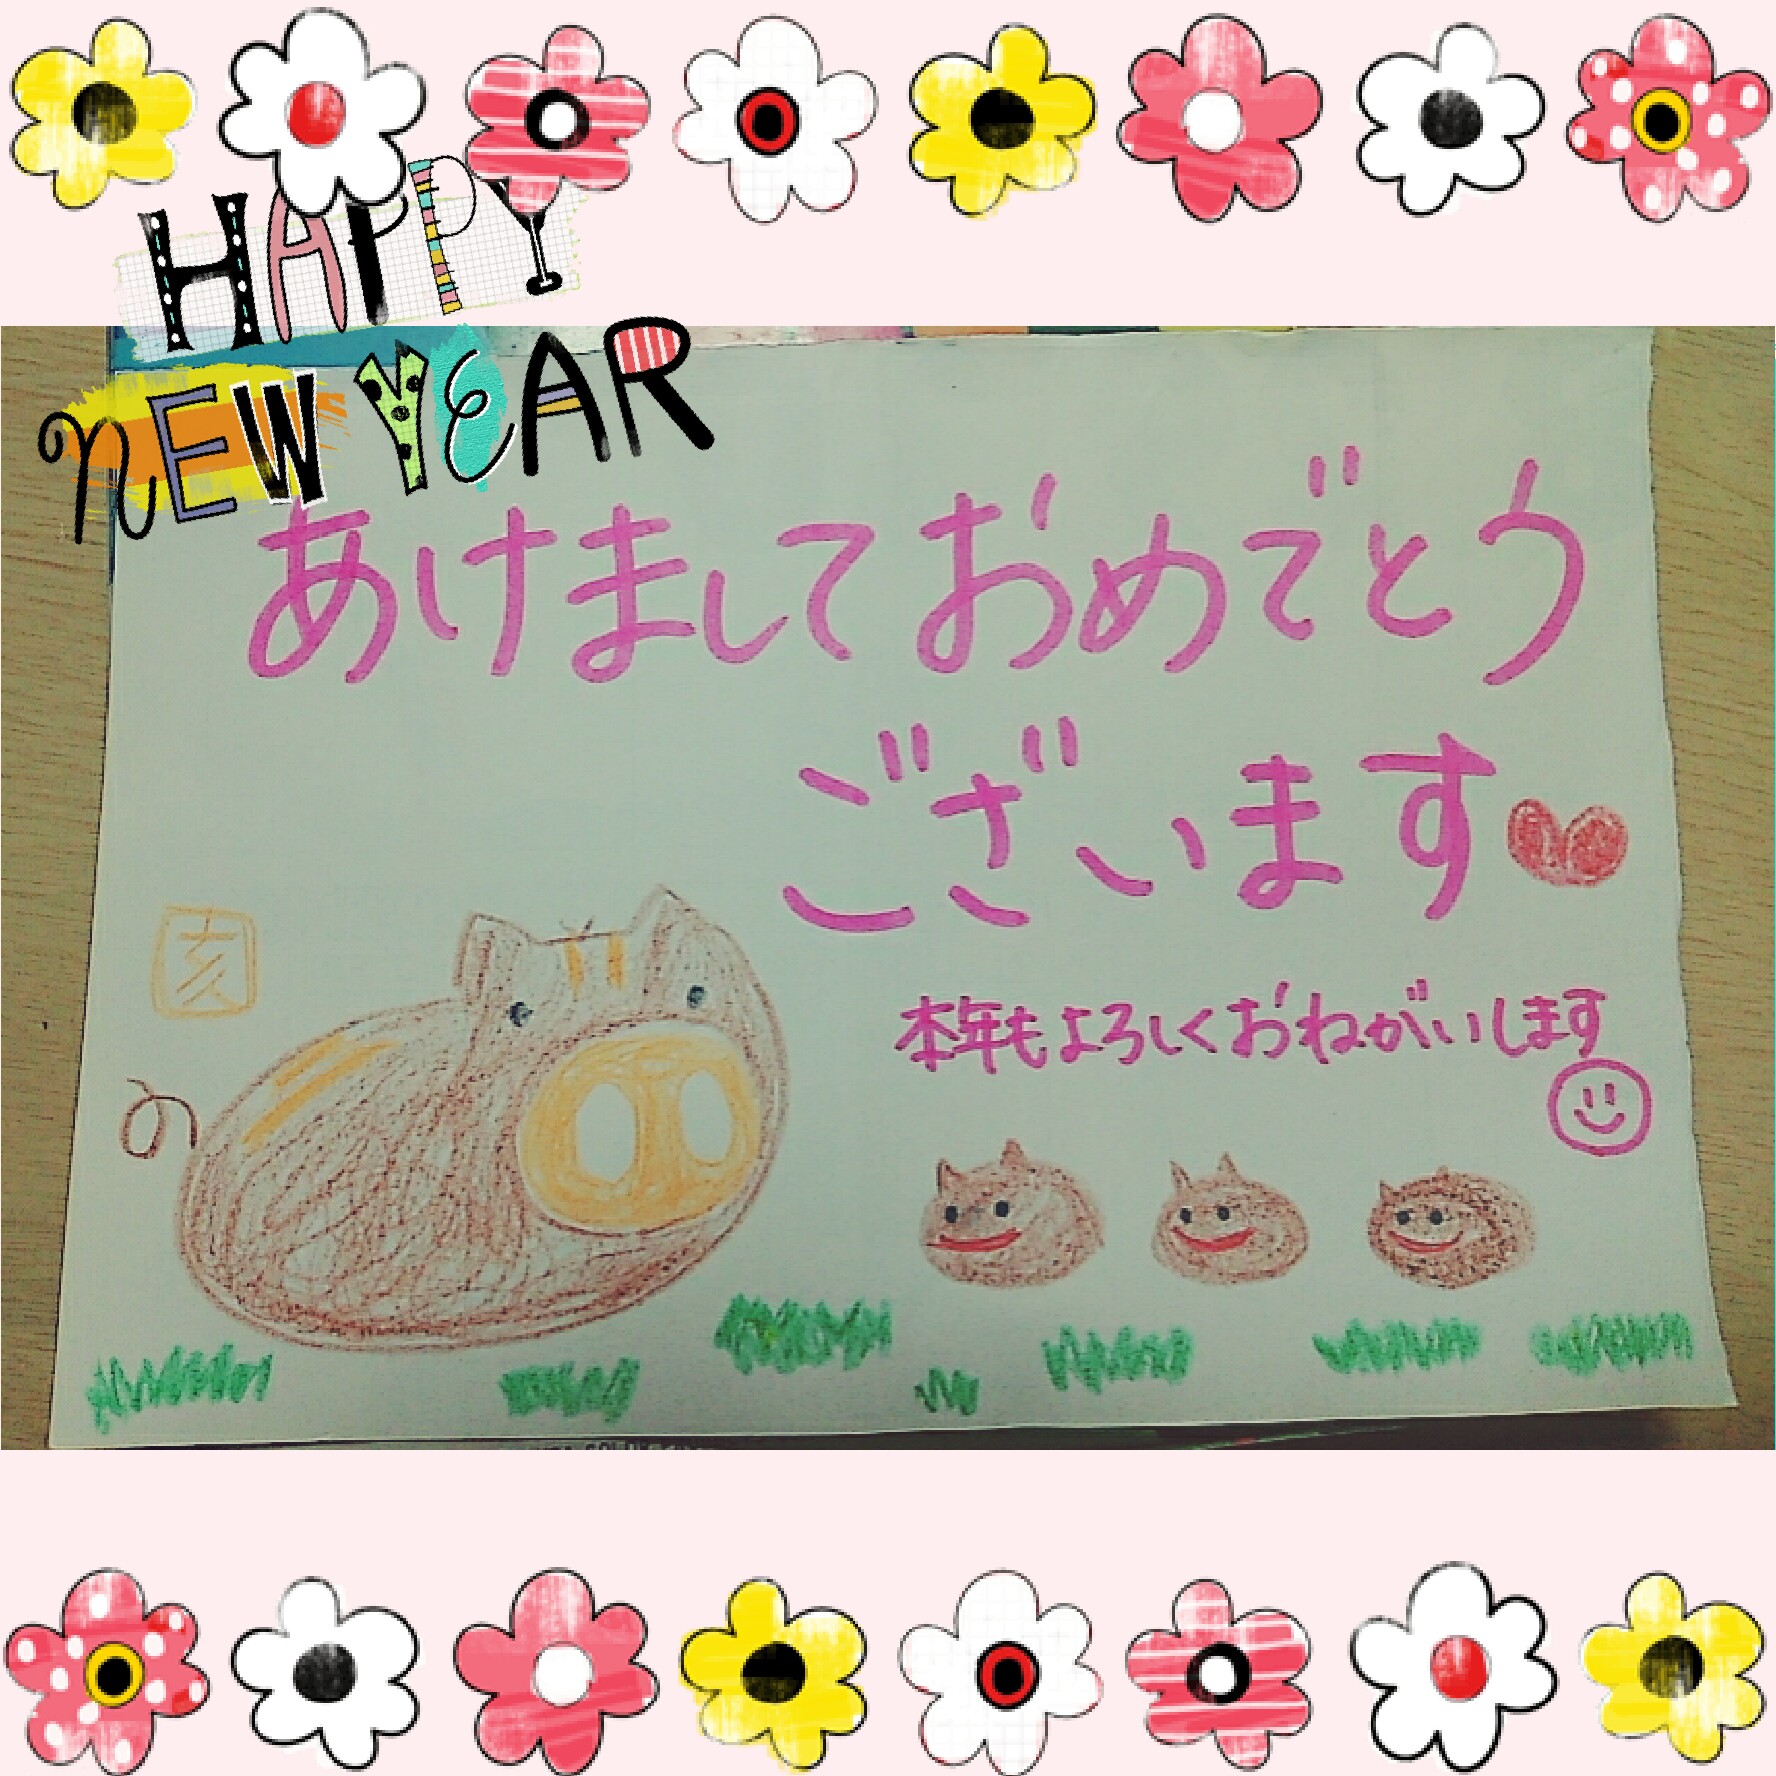 HAPPY
NEW YEAR
あけましておめでとう
ございます
亥
本年もよろしくおねがいします